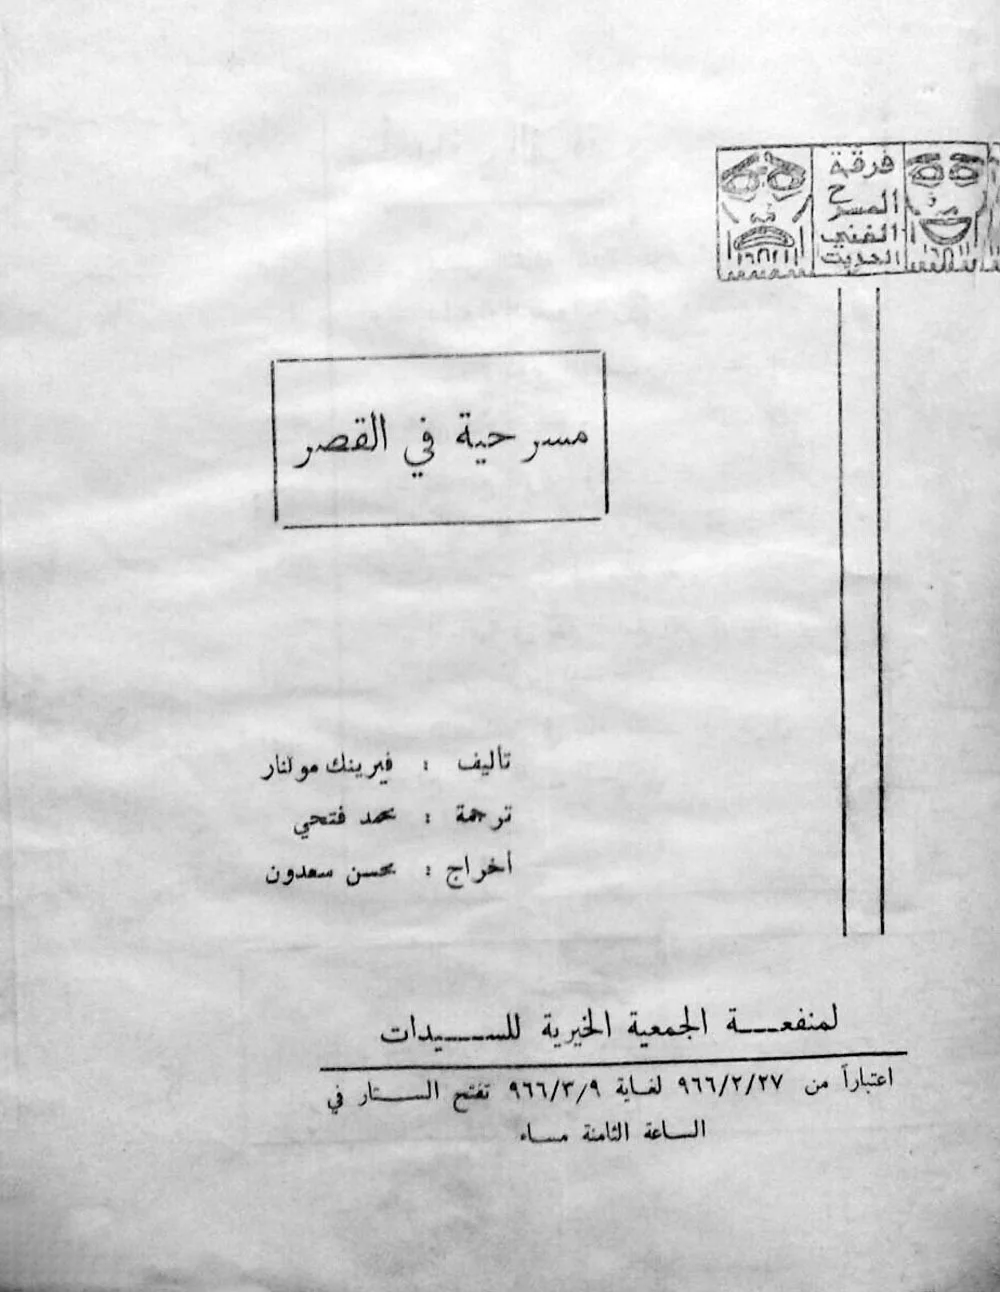 فرقة
المسرح
الفني
الحديث
مسرحية في القصر
تأليف : فيرينك مولنار
ترجمة : محمد فتحي
أخراج : محسن سعدون
لمنفعـــة الجمعية الخيرية للســـيدات
اعتباراً من ٩٦٦/٢/٢٧ لغاية ٩٦٦/٣/٩ تفتح الســـتار في
الساعة الثامنة مساء